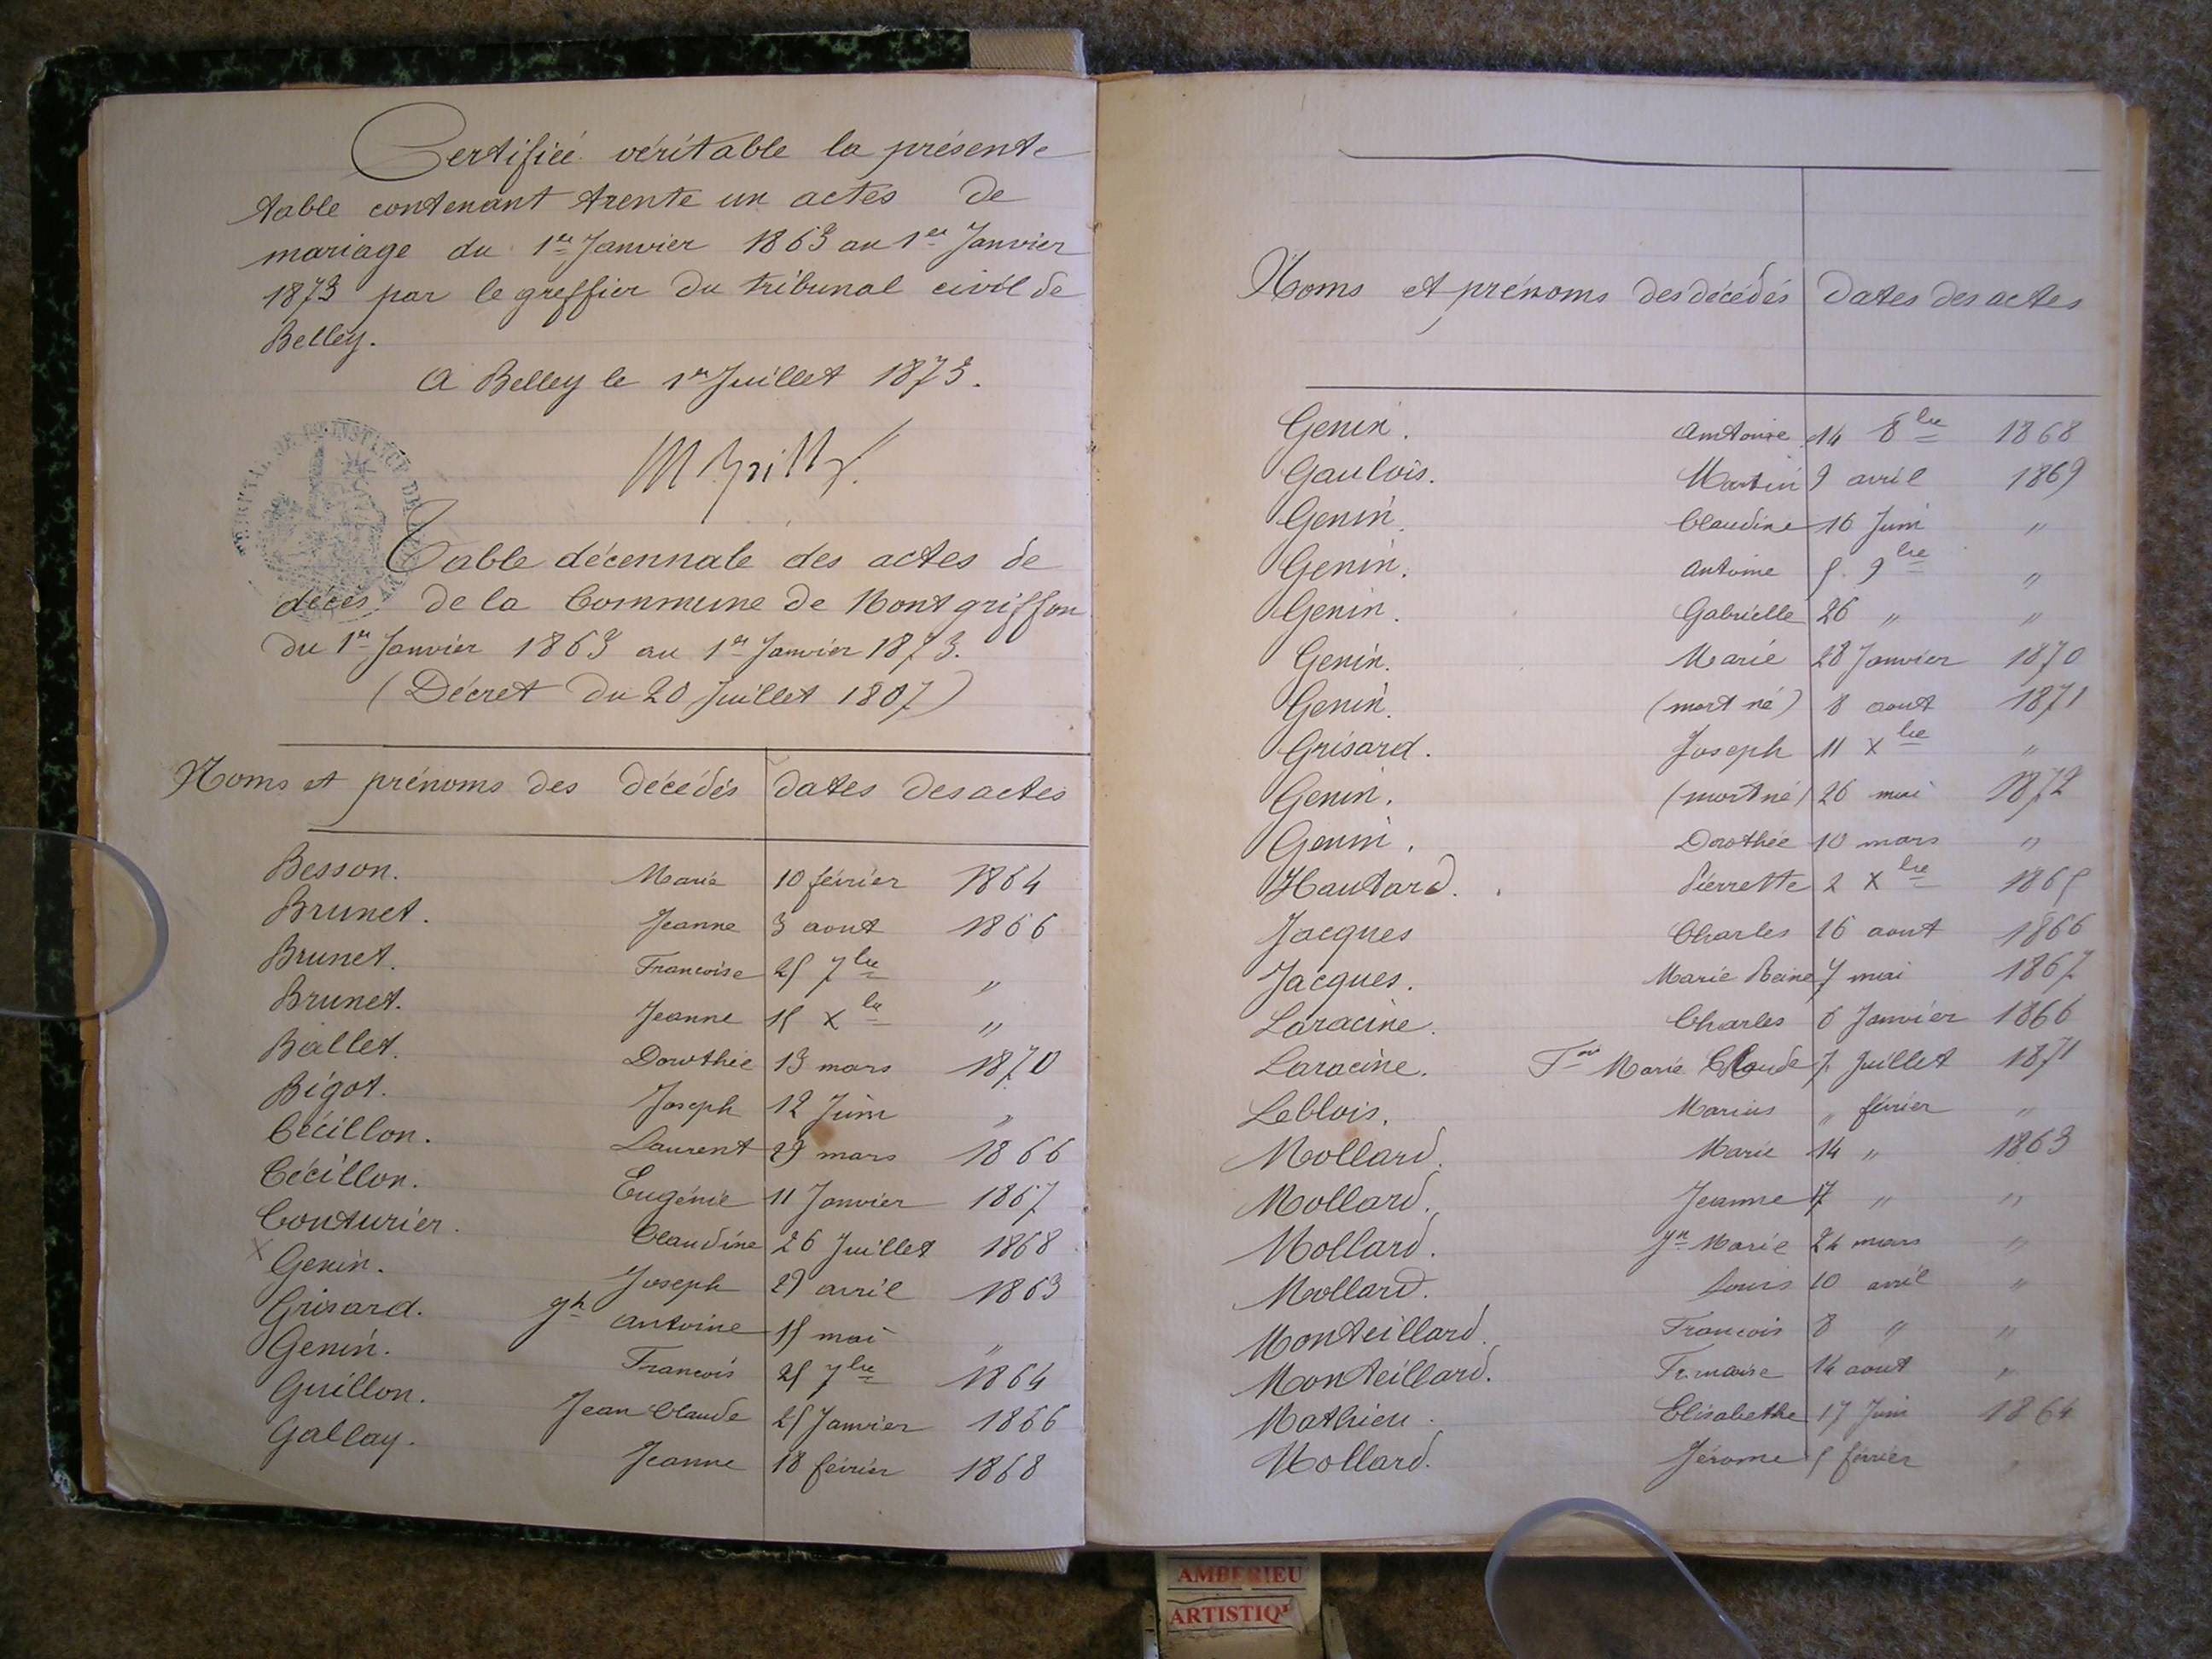 Certifiée véritable la présente
table contenant trente un actes de
mariage du 1er Janvier 1863 au 1er Janvier
1873 par le greffier du tribunal civil de
Belley.
A Belley le 1er Juillet 1873.
Table décennale des actes de
décès de la Commune de Montgriffon
du 1er Janvier 1863 au 1er Janvier 1873.
(Décret du 20 Juillet 1807)
Noms et prénoms des décédés dates des actes
Besson. Marie 10 février 1864
Brunet. Jeanne 3 aout 1866
Brunet. Francoise 25 7bre "
Brunet. Jeanne 15 Xbre "
Ballet. Dorothée 13 mars 1870
Bigot. Joseph 12 Juin "
Cécillon. Laurent 29 mars 1866
Cécillon. Eugénie 11 Janvier 1867
Couturier. Claudine 26 Juillet 1868
x Genin. Joseph 29 avril 1863
Grisard. Jh antoine 15 mai "
Genin. Francois 25 7bre 1864
Guillon. Jean Claude 25 Janvier 1866
Gallay. Jeanne 18 février 1868
Noms et prénoms des décédés Dates des actes
Genin. Antoine 14 8bre 1868
Gaulois. Martin 9 avril 1869
Genin. Claudine 16 Juin "
Genin. Antoine 5 9bre "
Genin. Gabrielle 26 " "
Genin. Marie 28 Janvier 1870
Genin. (mort né) 8 aout 1871
Grisard. Joseph 11 Xbre "
Genin. (mort né) 26 mai 1872
Genin. Dorothée 10 mars "
Hautard. Pierrette 2 Xbre 1865
Jacques Charles 16 aout 1866
Jacques. Marie Reine 7 mai 1867
Laracine. Charles 6 Janvier 1866
Laracine. Marie Claude 7 Juillet 1871
Leblois. Marius " février "
Mollard. Marie 14 " 1863
Mollard. Jeanne 17 " "
Mollard. Jne Marie 24 mars "
Mollard. Louis 10 avril "
Monteillard. Francois 8 " "
Monteillard. Francoise 14 aout "
Mathieu. Elisabethe 17 Juin 1864
Mollard. Jérome 5 février
AMBERIEU
ARTISTIQ